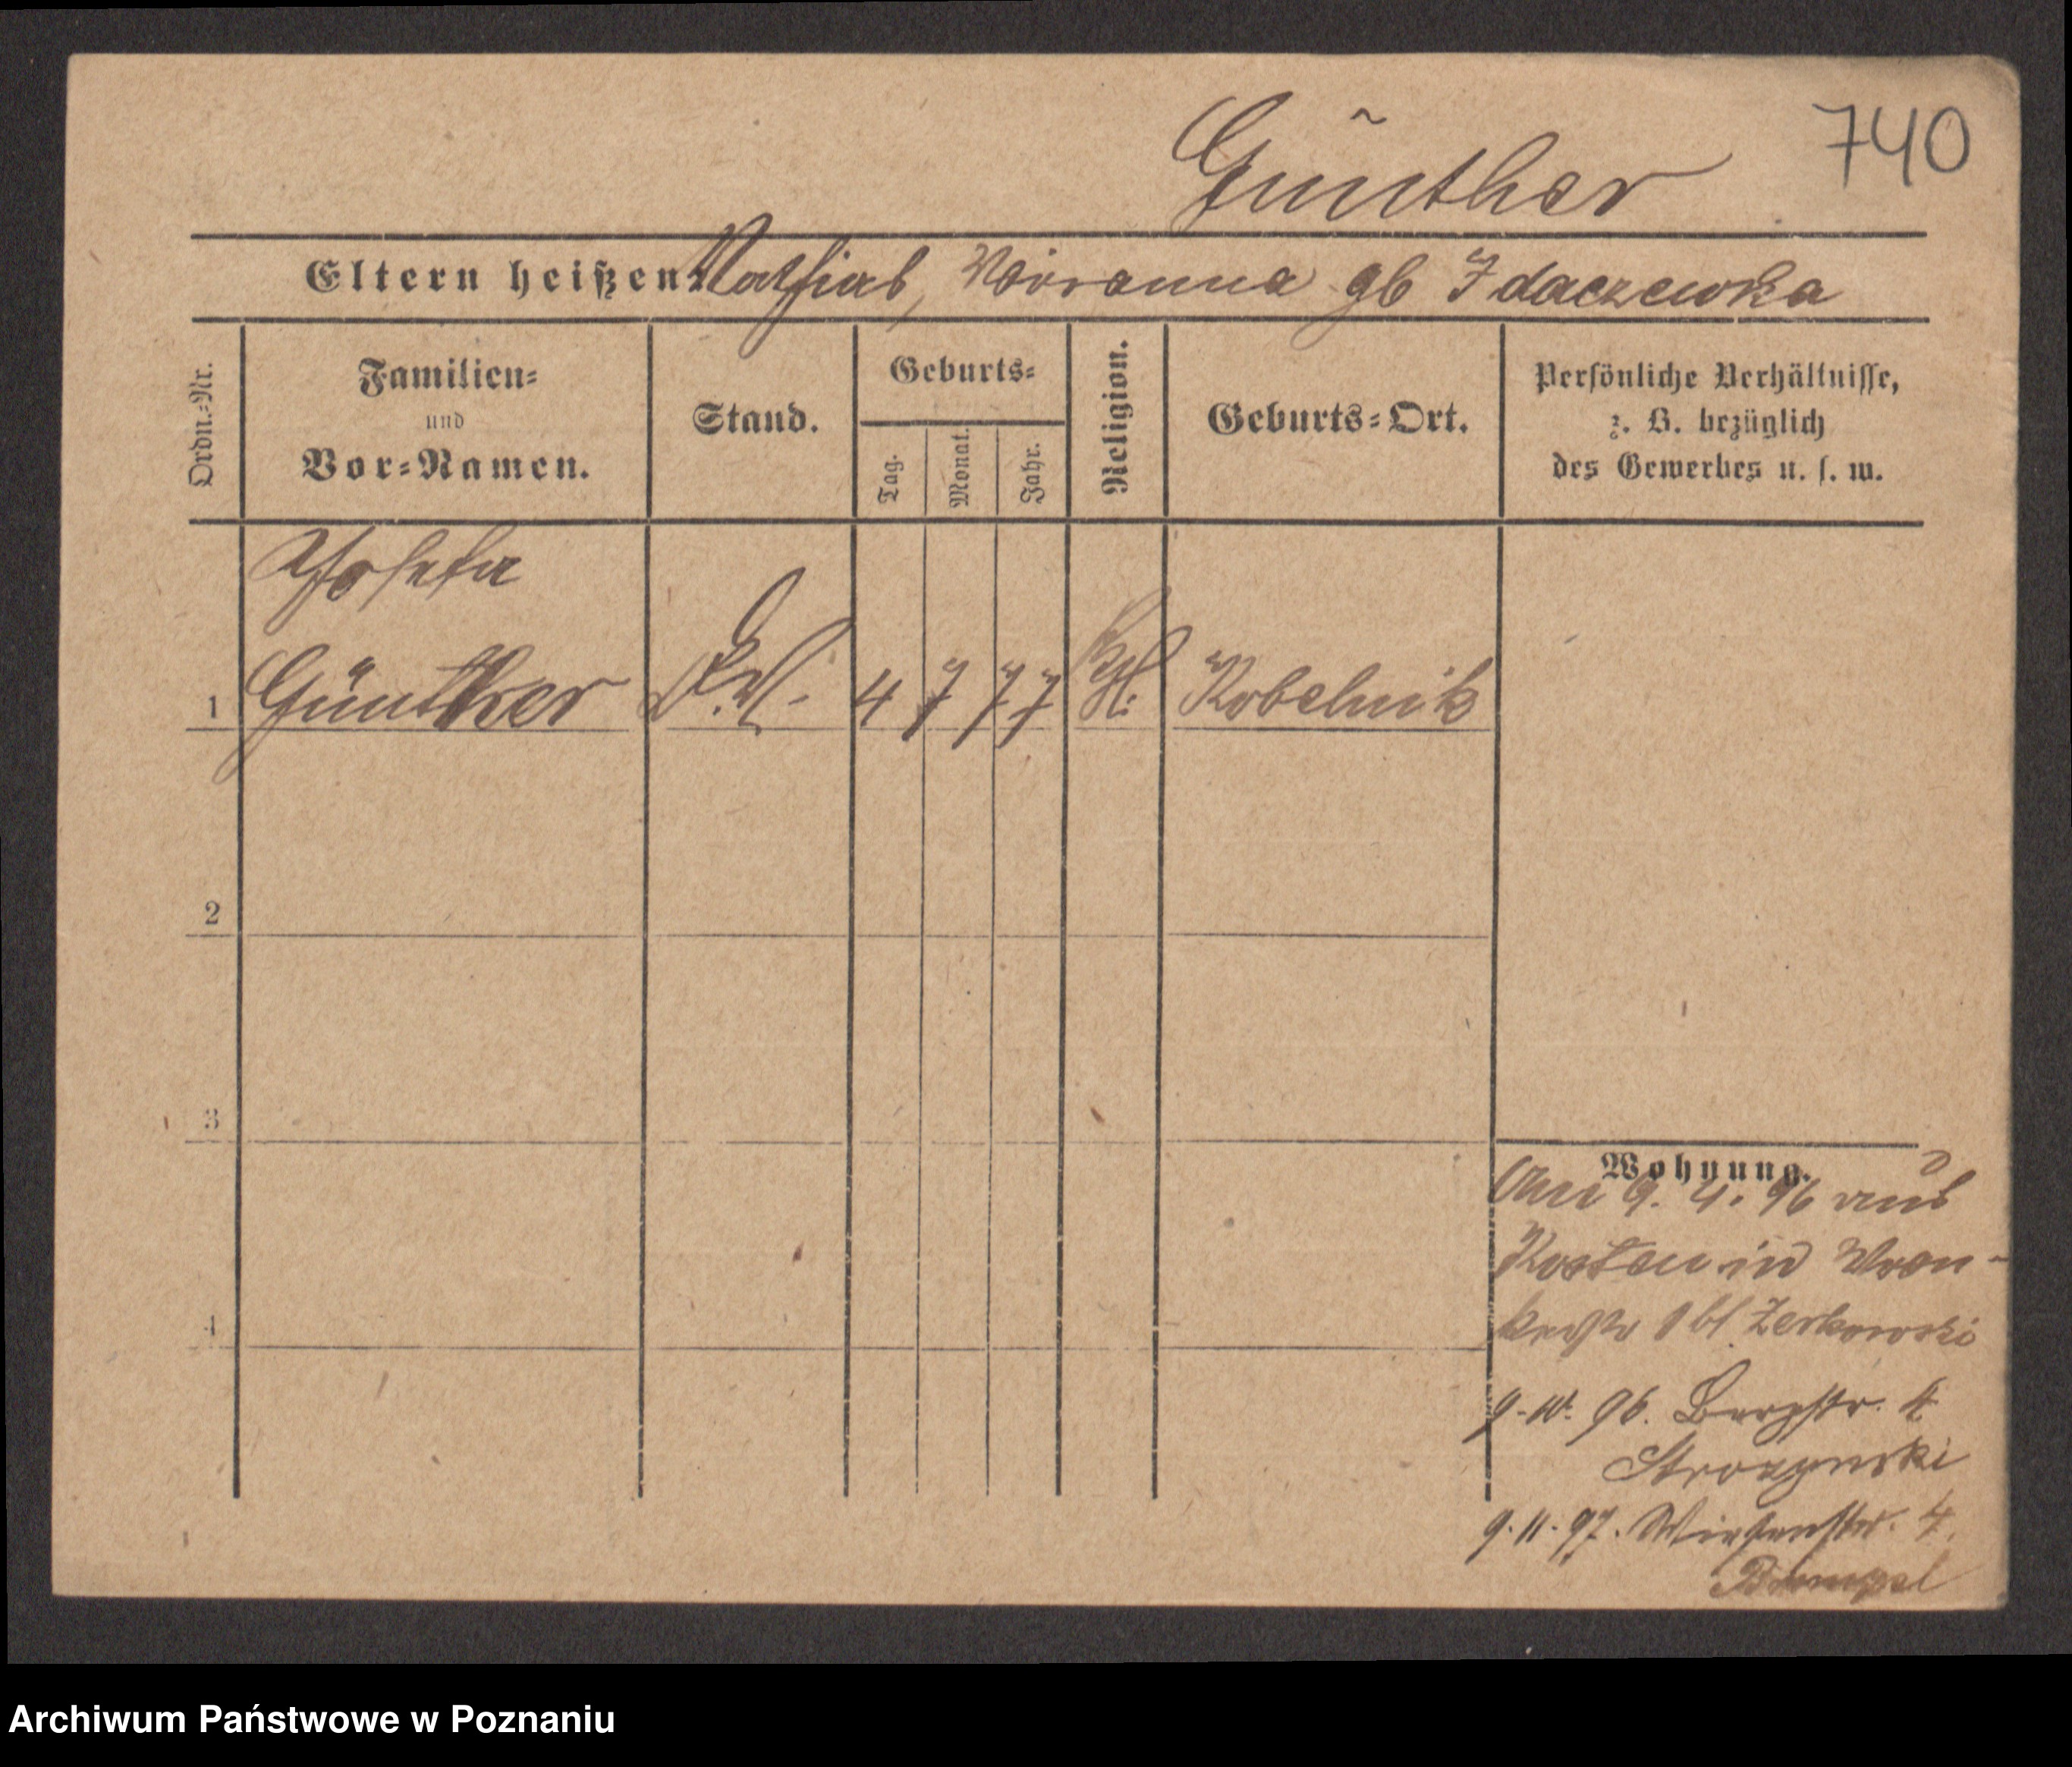 Günther 740
Eltern heißen: Mathias, Marianna gb Idaczewska
Ordn.-Nr.
Familien-
und
Vor-Namen.
Stand.
Geburts-
Tag.
Monat.
Jahr.
Religion.
Geburts-Ort.
Persönliche Verhältnisse,
z. B. bezüglich
des Gewerbes u. s. w.
Josefa
1 Günther 4 7 77 kth. Kobelnik
2
3
4
Wohnung.
Am 9. 4. 96 aus
Kosten in Wron-
kerstr 1 bt Zerkowski
9.10.96. Bergstr. 4
Stroczynski
9.11.97. Wiesenstr. 4.
Archiwum Państwowe w Poznaniu